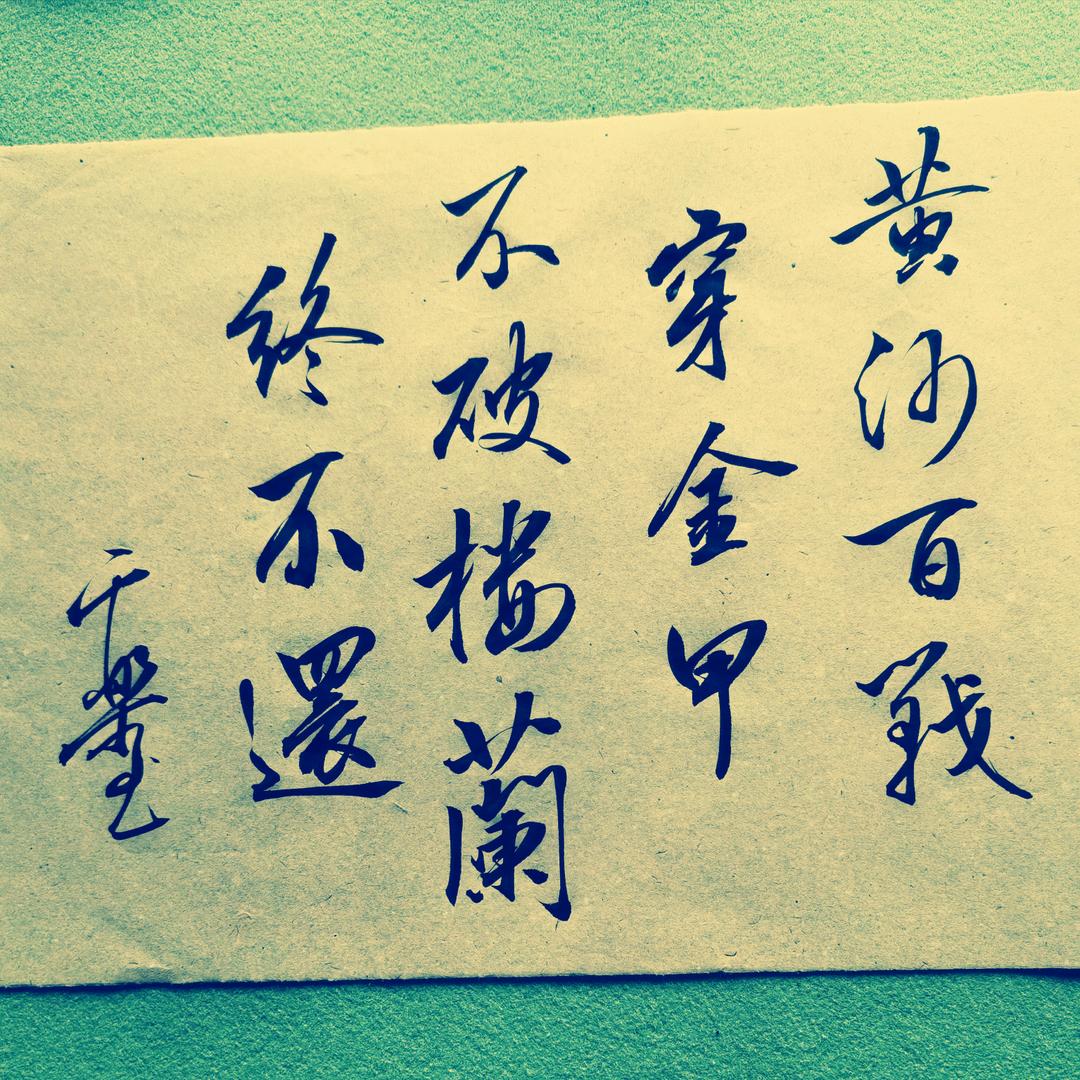 黄沙百戰
穿金甲
不破楼蘭
終不還